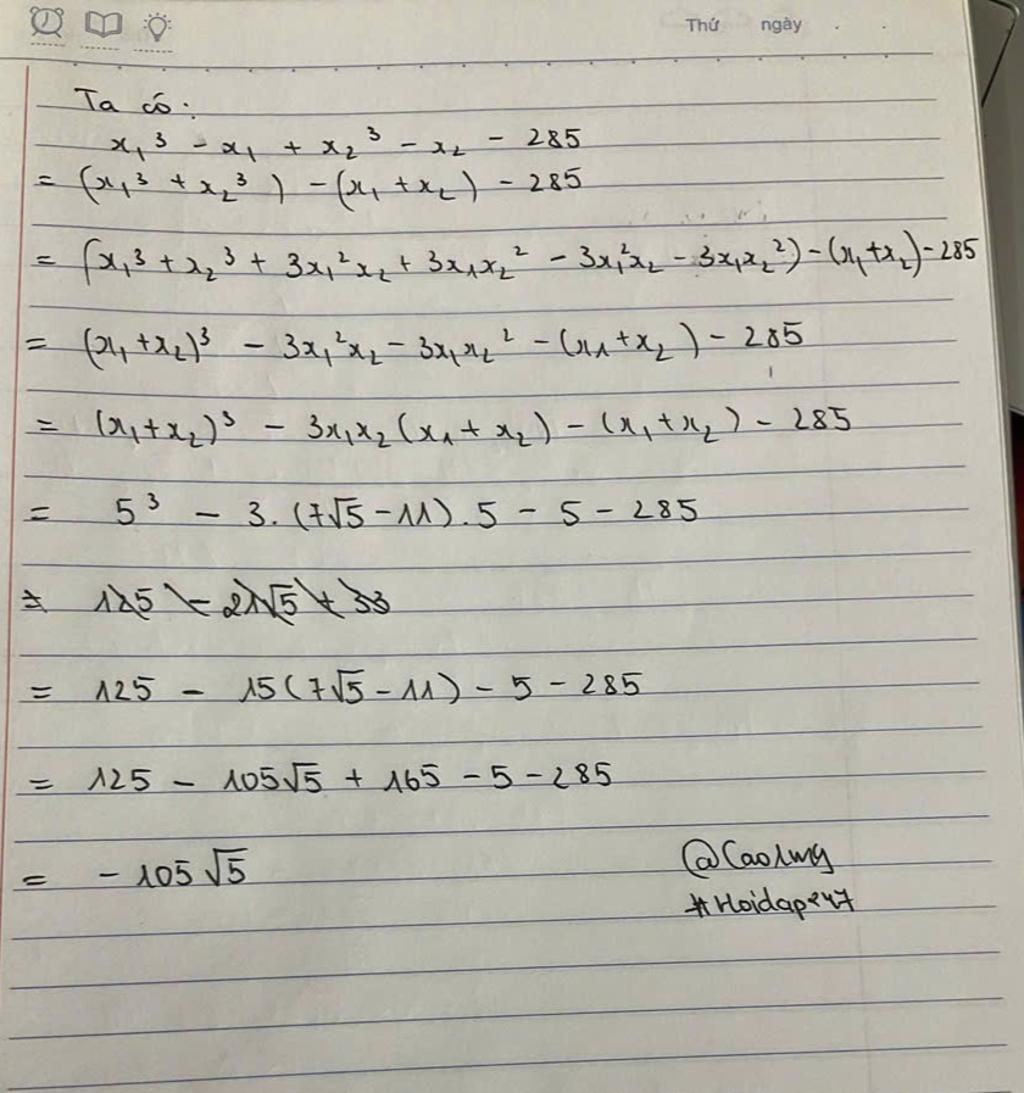 Thứ ngày
Ta có:
x₁³ - x₁ + x₂³ - x₂ - 285
= (x₁³ + x₂³) - (x₁ + x₂) - 285
= (x₁³ + x₂³ + 3x₁²x₂ + 3x₁x₂² - 3x₁²x₂ - 3x₁x₂²) - (x₁+x₂) - 285
= (x₁+x₂)³ - 3x₁²x₂ - 3x₁x₂² - (x₁+x₂) - 285
= (x₁+x₂)³ - 3x₁x₂(x₁+x₂) - (x₁+x₂) - 285
= 5³ - 3.(7√5-11).5 - 5 - 285
= 125 - 21√5 + 33
= 125 - 15(7√5-11) - 5 - 285
= 125 - 105√5 + 165 - 5 - 285
= -105√5
#Hoidap247